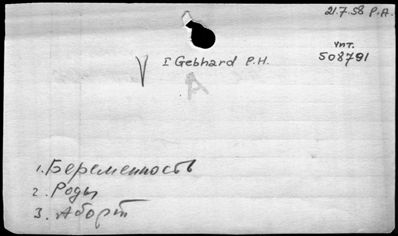 21.7.58 P.A.
Упт.
508791
I Gebhard P.H.
A
1. Беременность
2. Роды
3. Аборт